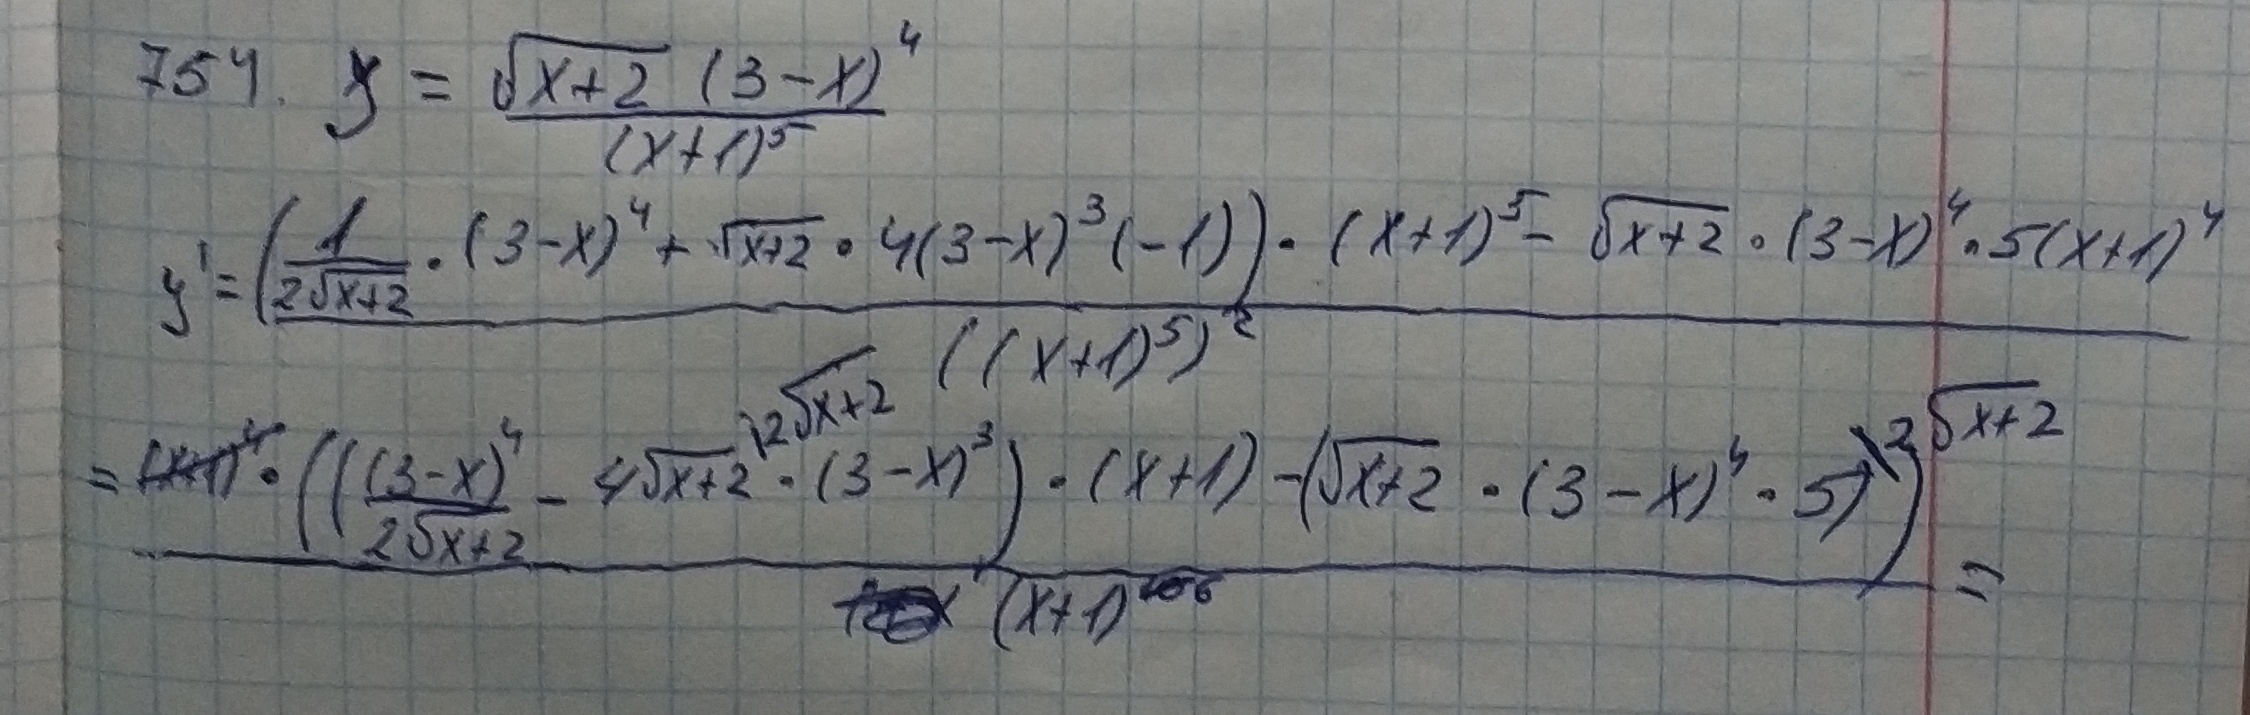 754. y = √(x+2) (3-x)⁴ / (x+1)⁵
y' = ((1/(2√(x+2))) · (3-x)⁴ + √(x+2) · 4(3-x)³(-1)) · (x+1)⁵ - √(x+2) · (3-x)⁴ · 5(x+1)⁴ / ((x+1)⁵)²
= (x+1)⁴ · (((3-x)⁴/(2√(x+2)) - 4√(x+2) \2√(x+2) · (3-x)³) · (x+1) - (√(x+2) · (3-x)⁴ · 5) \2√(x+2)) / (x+1)⁶ =